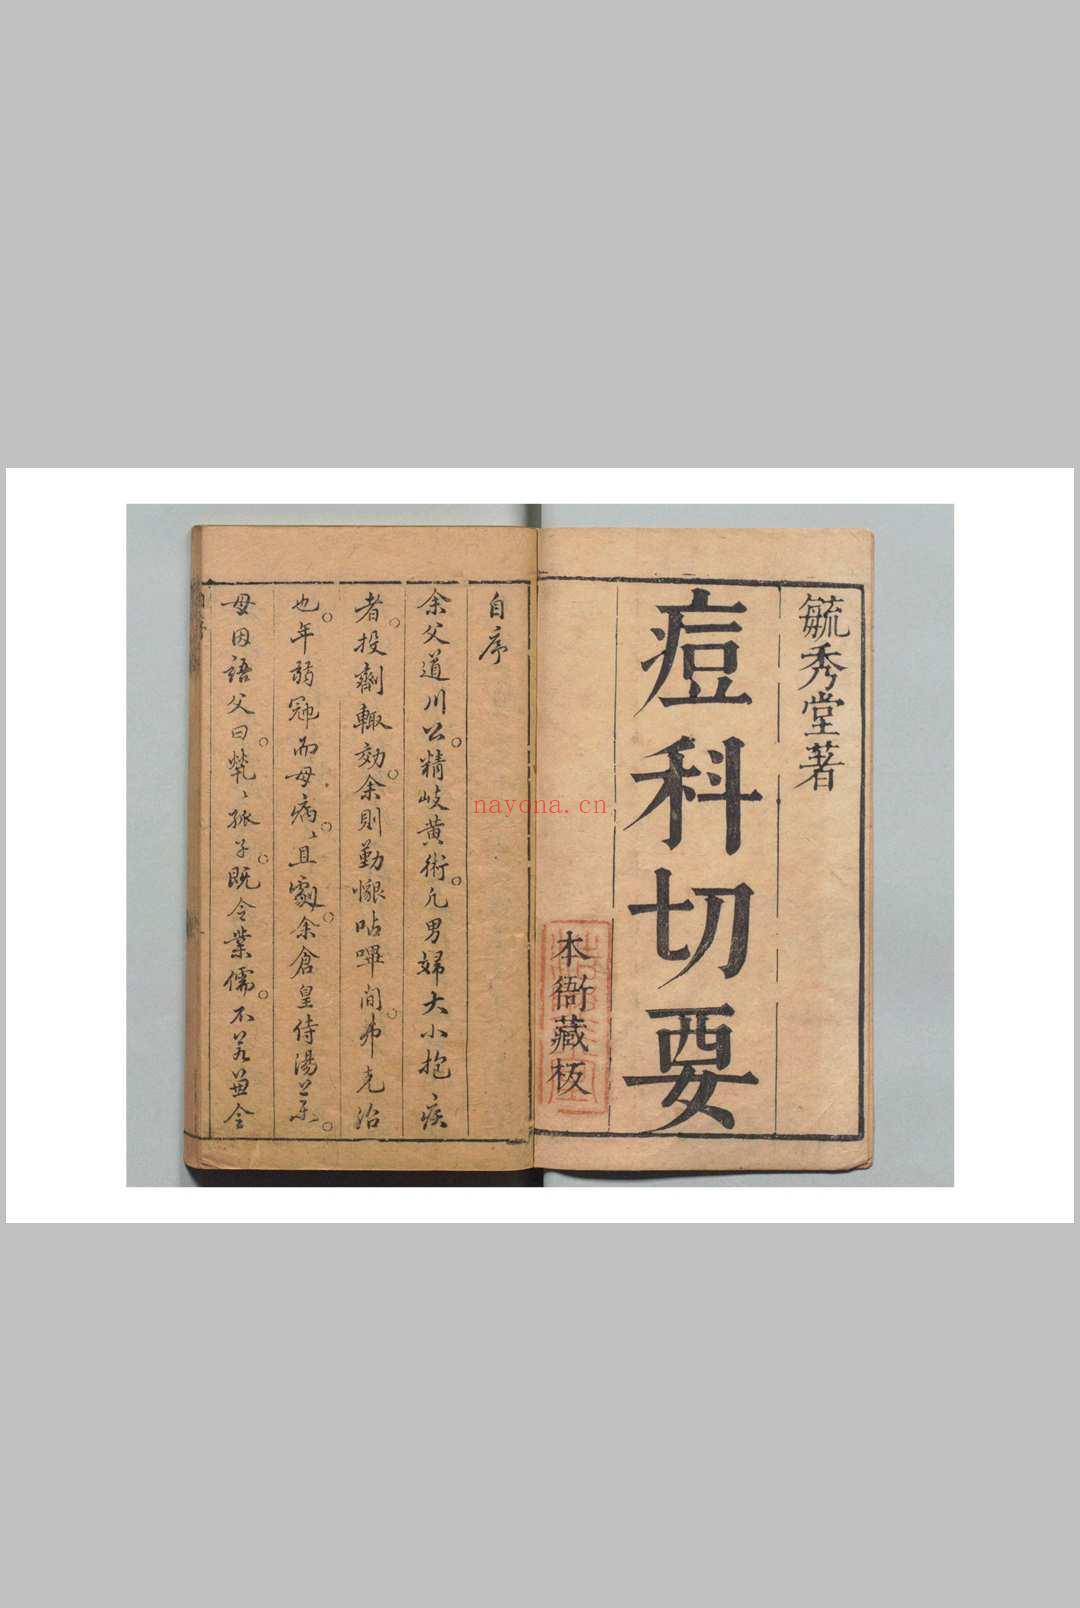 毓秀堂著
痘科切要
本衙藏板
自序
余父道川公。精岐黄術。凡男婦大小抱疾
者。投劑輙効。余則勤懇呫嗶间。弗克治
也。年弱冠而母病。〻且劇。余倉皇侍湯藥。
母因語父曰。煢〻孤子。既令業儒。不若兼令
nayona.cn